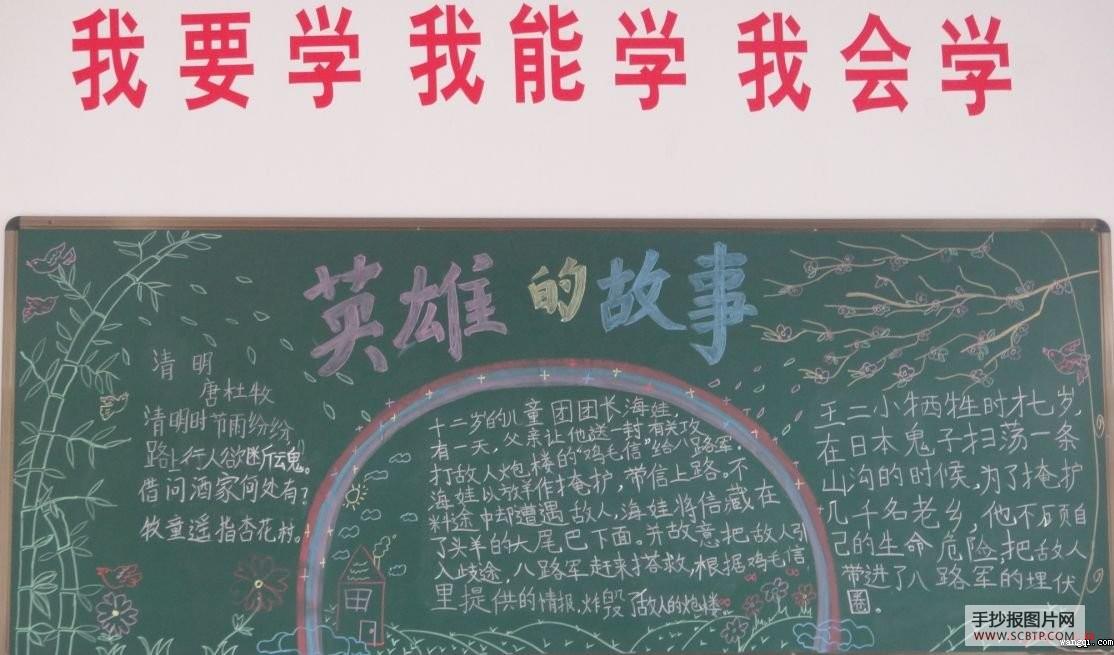 我要学 我能学 我会学
英雄的故事
清明
唐杜牧
清明时节雨纷纷
路上行人欲断魂。
借问酒家何处有？
牧童遥指杏花村。
十二岁的儿童团团长海娃，
有一天，父亲让他送一封有关攻
打敌人炮楼的“鸡毛信”给八路军。
海娃以放羊作掩护，带信上路。不
料途中却遭遇敌人，海娃将信藏在
了头羊的大尾巴下面。并故意把敌人引
入歧途，八路军赶来搭救，根据鸡毛信
里提供的情报，炸毁了敌人的炮楼。
王二小牺牲时才七岁，
在日本鬼子扫荡一条
山沟的时候，为了掩护
几千名老乡，他不顾自
己的生命危险，把敌人
带进了八路军的埋伏
圈。
手抄报图片网
WWW.SCBTP.COM
wangqi.com